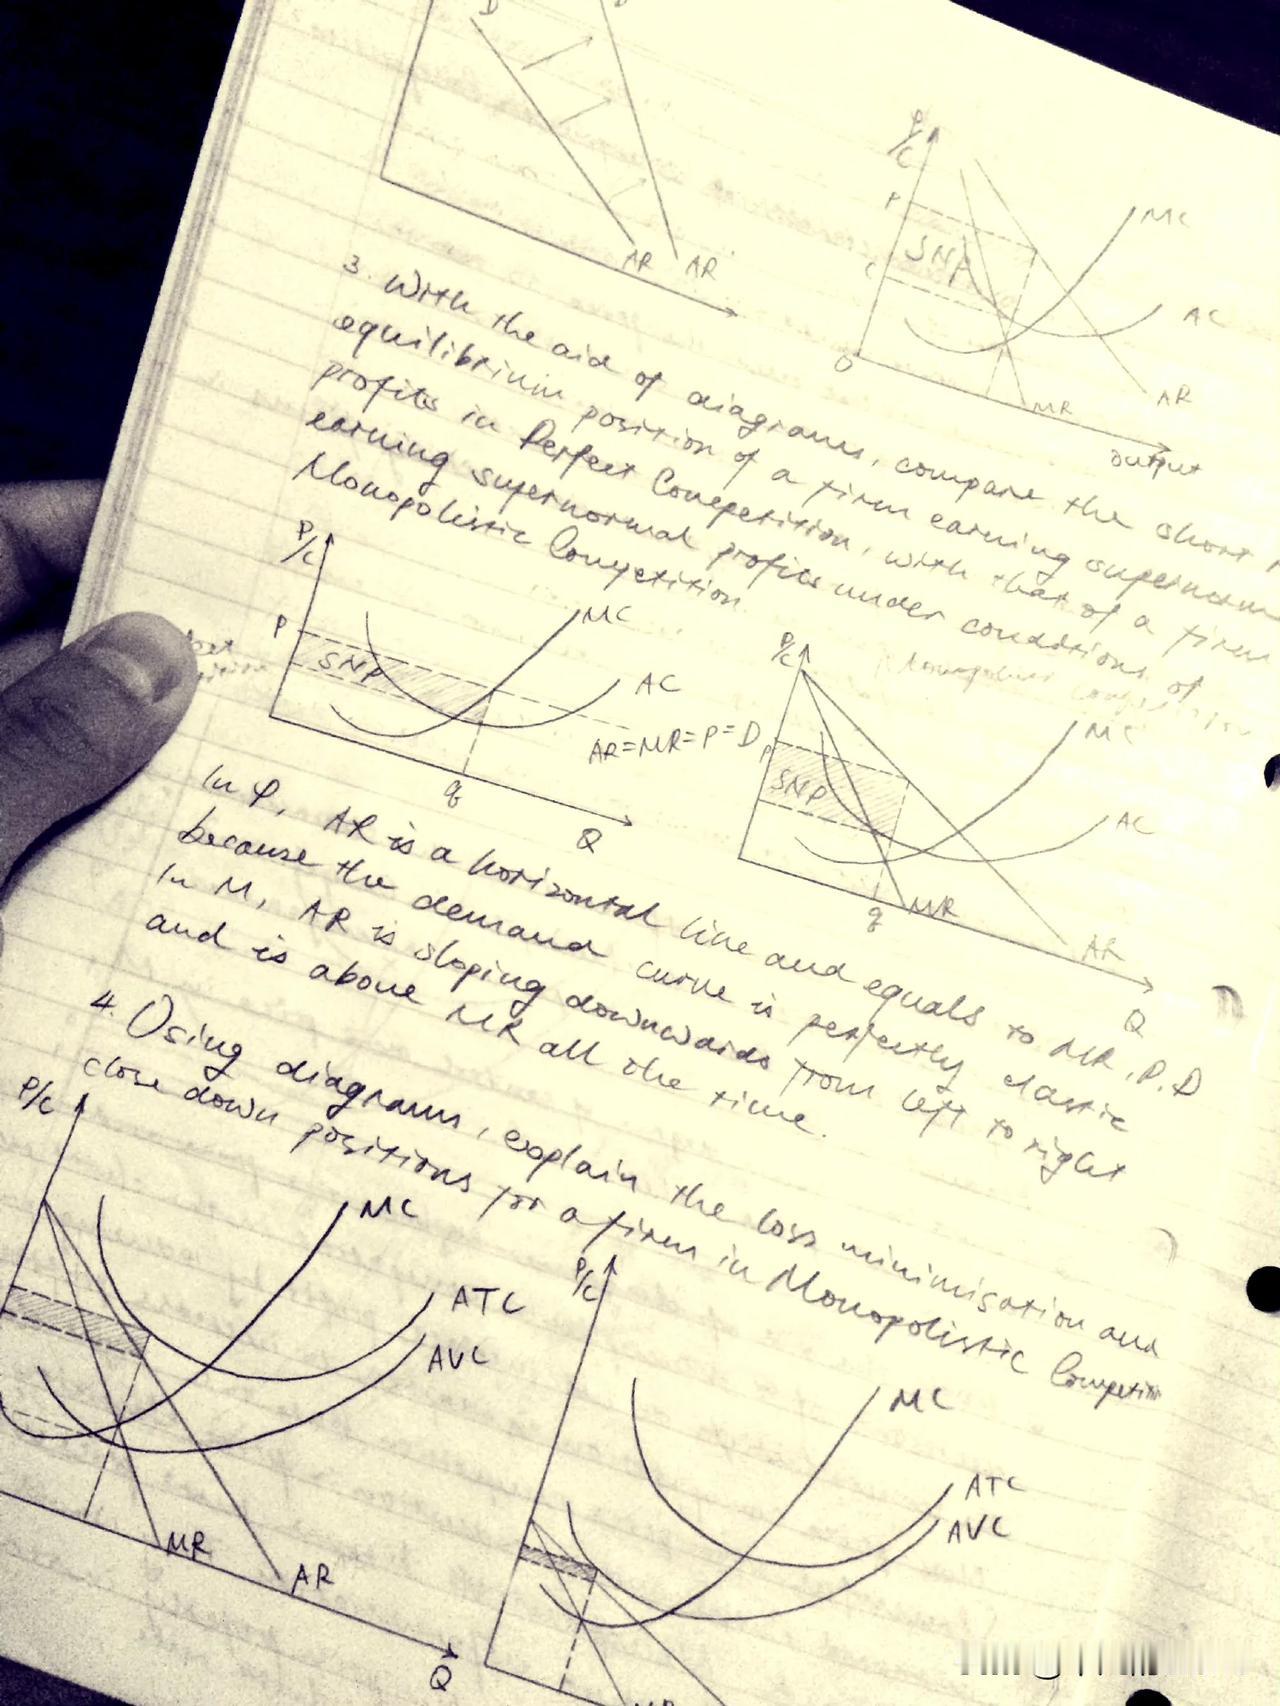 D
AR AR
P/c
P
SNP
c
MC
AC
O
MR
AR
output
3. With the aid of diagrams, compare the short
equilibrium position of a firm earning supernorm
profits in Perfect Competition, with that of a firm
earning supernormal profits under conditions of
Monopolistic Competition.
P/c
P
SNP
MC
AC
AR=MR=P=D
q
Q
P/c
P
SNP
MC
AC
MR
AR
q
Q
In P, AR is a horizontal line and equals to MR, P, D
because the demand curve is perfectly elastic
In M, AR is sloping downwards from left to right
and is above MR all the time.
4. Using diagrams, explain the loss minimisation and
close down positions for a firm in Monopolistic Competition
P/c
MC
ATC
AVC
MR
AR
Q
P/c
MC
ATC
AVC
MR